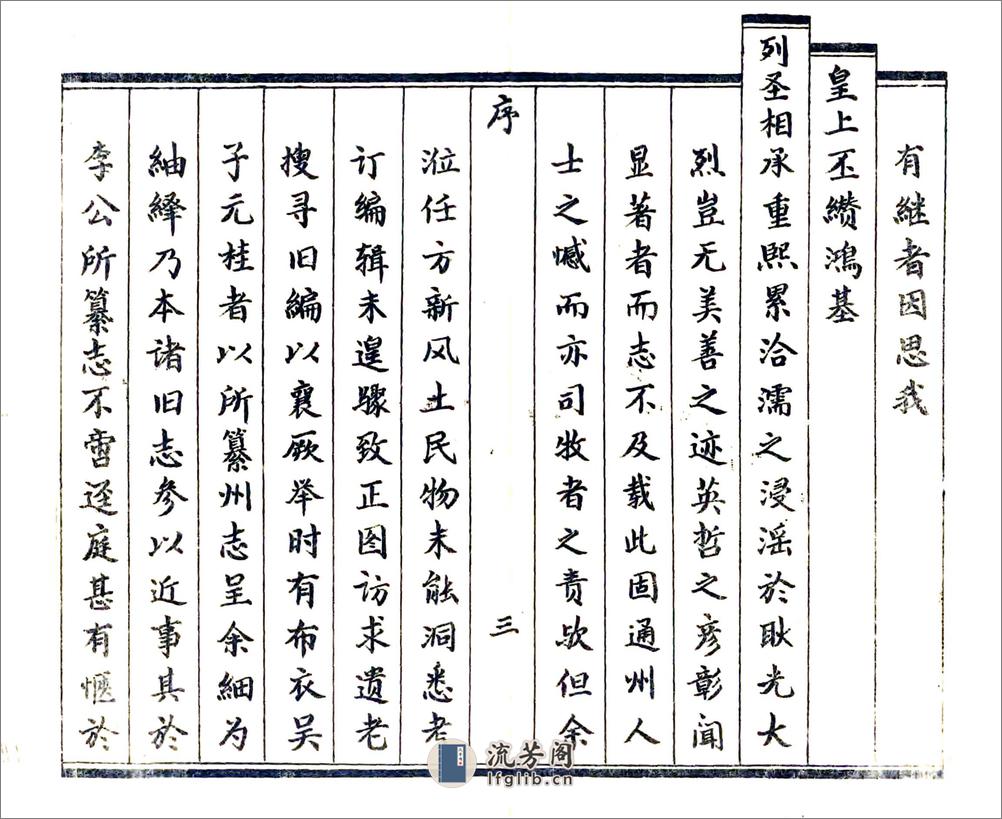 有继者因思我
皇上丕缵鸿基
列圣相承重熙累洽濡之浸淫於耿光大
烈岂无美善之迹英哲之彦彰闻
显著者而志不及载此固通州人
士之憾而亦司牧者之责欤但余
序
三
涖任方新风土民物未能洞悉考
订编辑未遑骤致正图访求遗老
搜寻旧编以襄厥举时有布衣吴
子元桂者以所纂州志呈余细为
紬绎乃本诸旧志参以近事其於
李公所纂志不啻迳庭甚有惬於
流芳阁
lfglib.cn